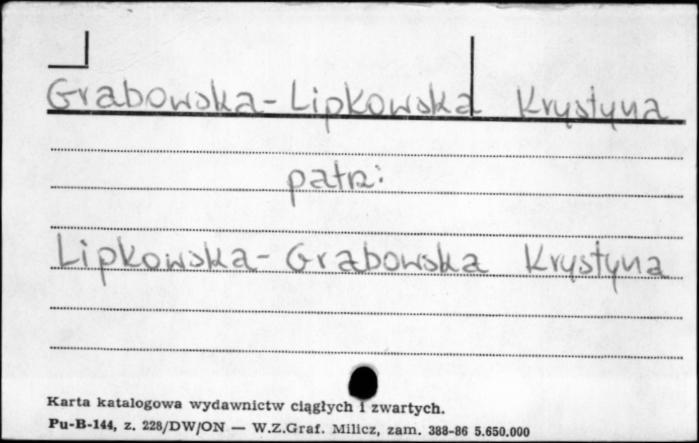 Grabowska-Lipkowska Krystyna
patrz:
Lipkowska-Grabowska Krystyna
Karta katalogowa wydawnictw ciągłych i zwartych.
Pu-B-144, z. 228/DW/ON — W.Z.Graf. Milicz, zam. 388-86 5.650.000